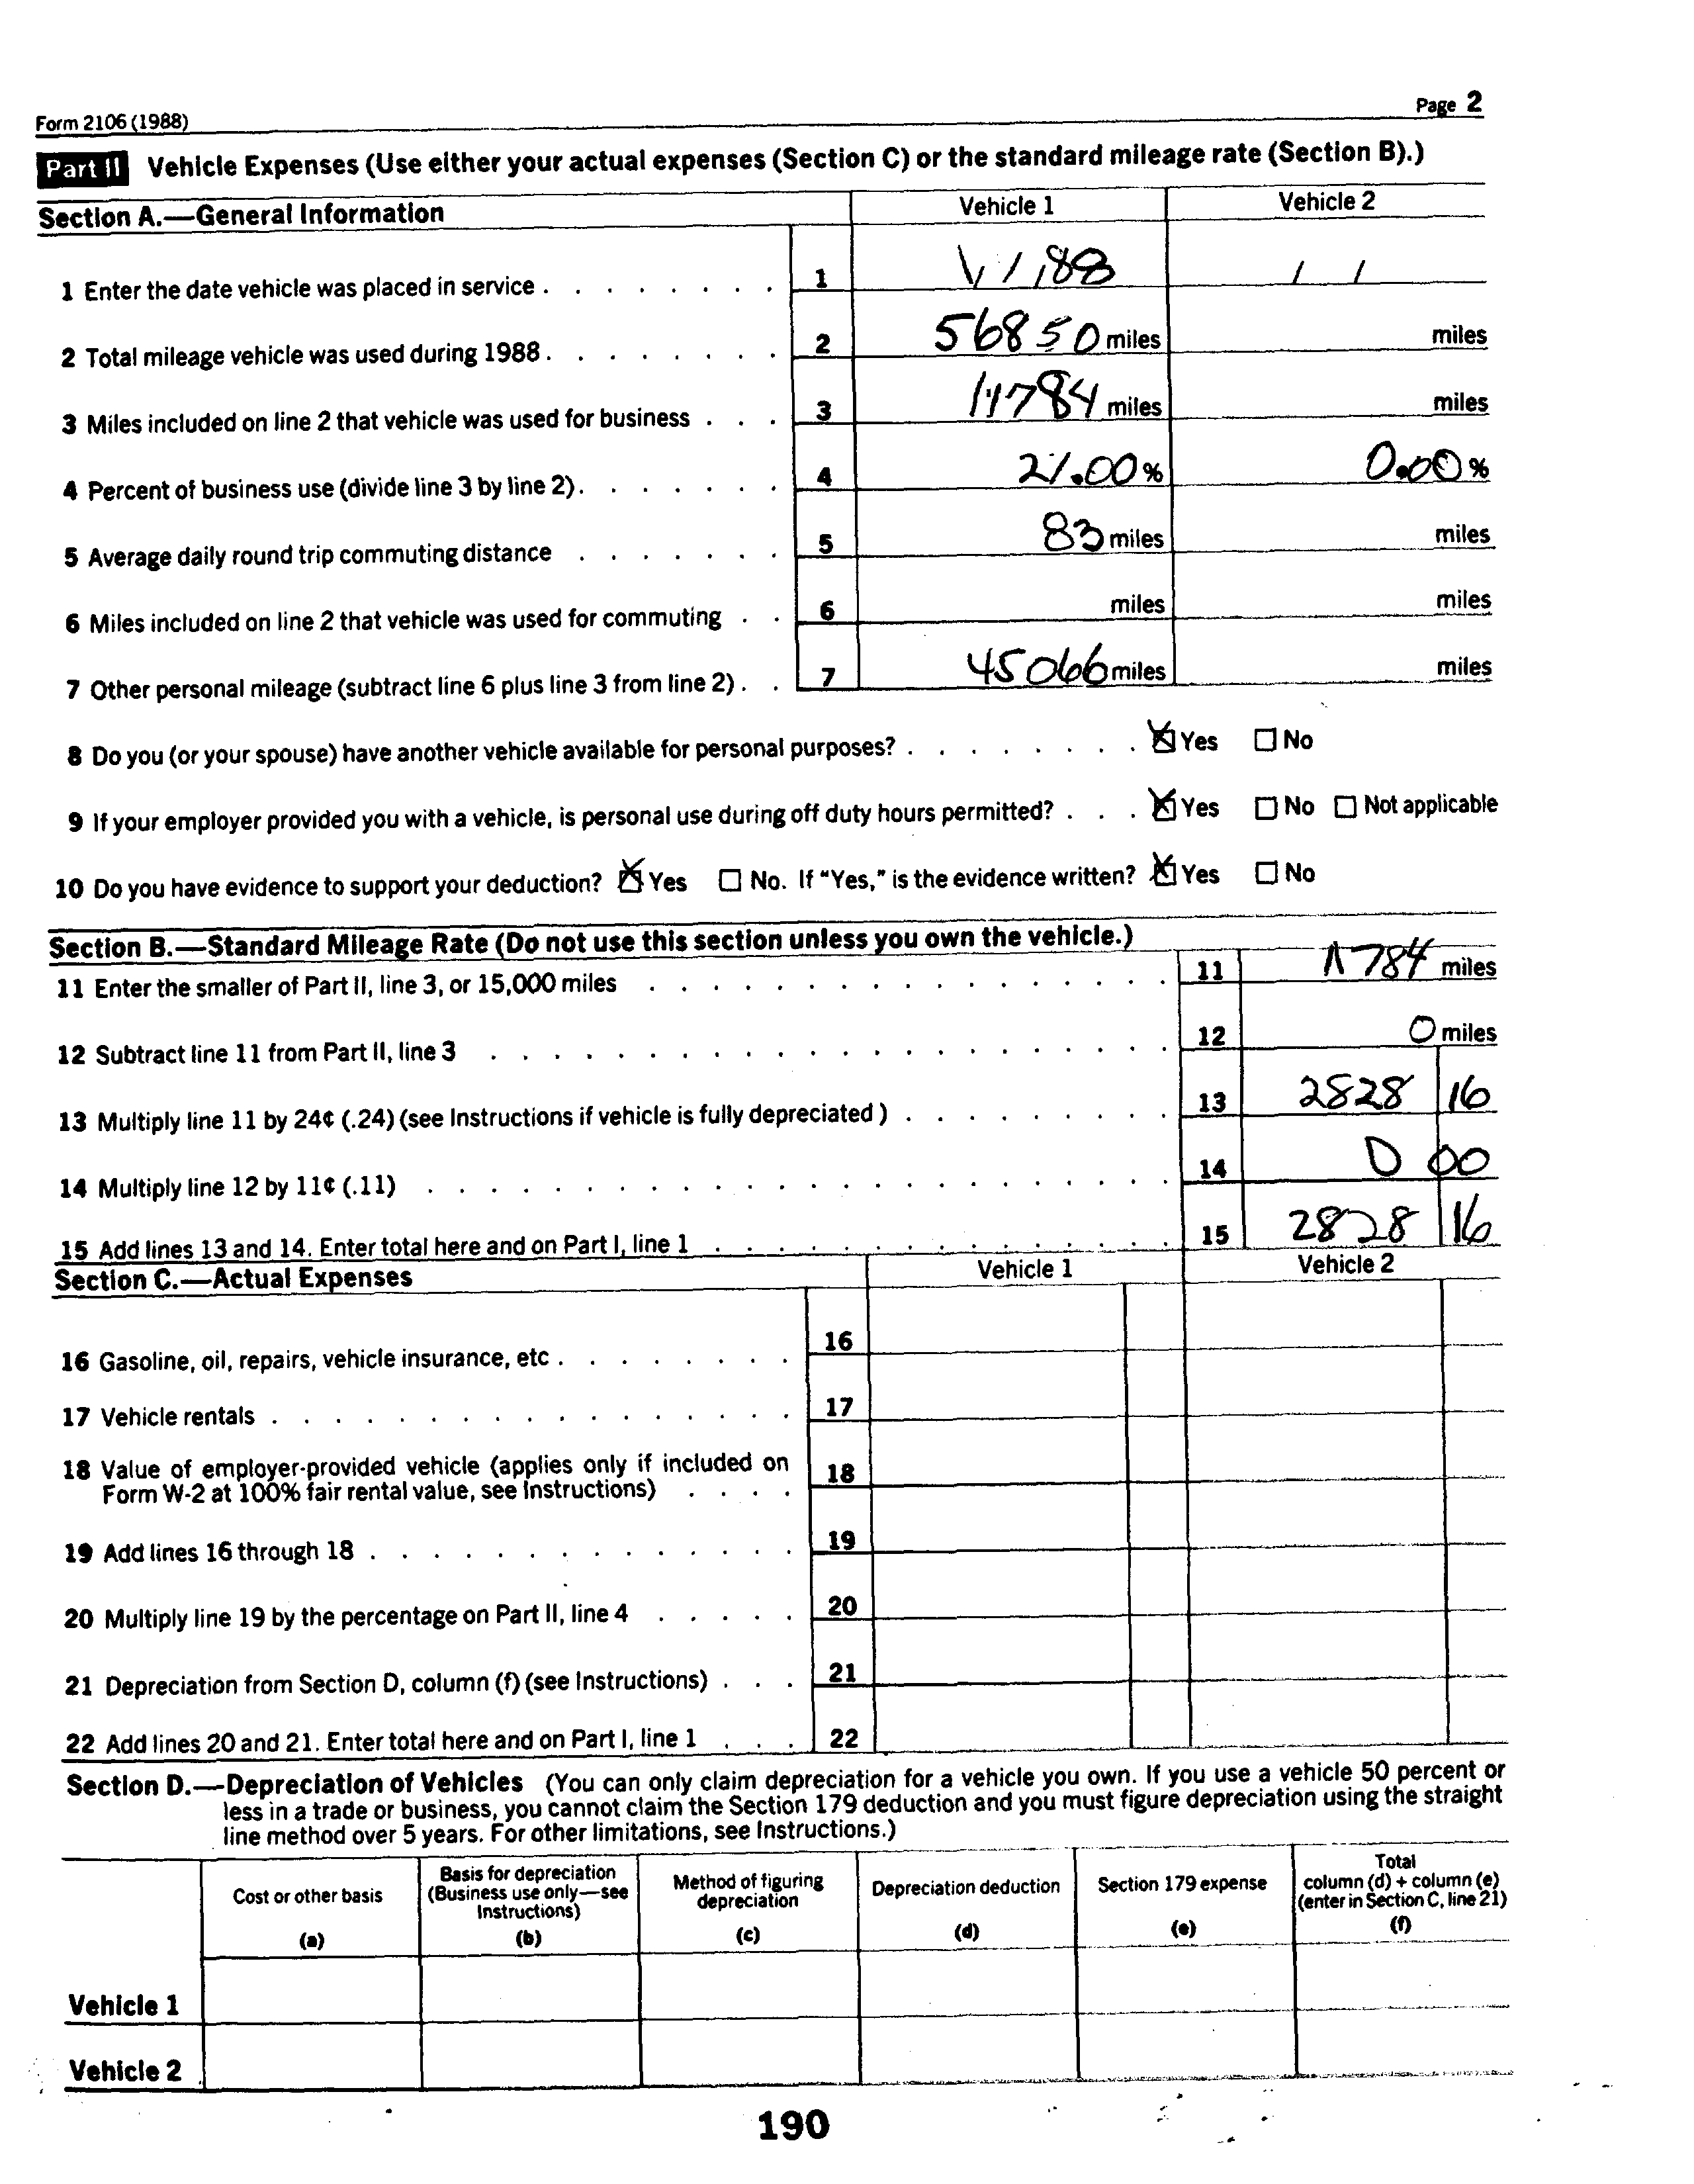 Form 2106 (1988)
Page 2
Part II Vehicle Expenses (Use either your actual expenses (Section C) or the standard mileage rate (Section B).)
Section A.—General Information Vehicle 1 Vehicle 2
1 Enter the date vehicle was placed in service . . . . . . . . 1 / /88 / /
2 Total mileage vehicle was used during 1988 . . . . . . . . 2 56850 miles miles
3 Miles included on line 2 that vehicle was used for business . . . 3 11784 miles miles
4 Percent of business use (divide line 3 by line 2) . . . . . . . 4 21.00 % 0.00 %
5 Average daily round trip commuting distance . . . . . . . 5 83 miles miles
6 Miles included on line 2 that vehicle was used for commuting . . 6 miles miles
7 Other personal mileage (subtract line 6 plus line 3 from line 2) . . 7 45066 miles miles
8 Do you (or your spouse) have another vehicle available for personal purposes? . . . . . . . . ☒ Yes ☐ No
9 If your employer provided you with a vehicle, is personal use during off duty hours permitted? . . . ☒ Yes ☐ No ☐ Not applicable
10 Do you have evidence to support your deduction? ☒ Yes ☐ No. If "Yes," is the evidence written? ☒ Yes ☐ No
Section B.—Standard Mileage Rate (Do not use this section unless you own the vehicle.)
11 Enter the smaller of Part II, line 3, or 15,000 miles . . . . . . . . . . . . . . . . . 11 11784 miles
12 Subtract line 11 from Part II, line 3 . . . . . . . . . . . . . . . . . . . . . . 12 0 miles
13 Multiply line 11 by 24¢ (.24) (see Instructions if vehicle is fully depreciated ) . . . . . . . . . 13 2828 16
14 Multiply line 12 by 11¢ (.11) . . . . . . . . . . . . . . . . . . . . . . . . 14 0 00
15 Add lines 13 and 14. Enter total here and on Part I, line 1 . . . . . . . . . . . . . . . 15 2828 16
Section C.—Actual Expenses Vehicle 1 Vehicle 2
16 Gasoline, oil, repairs, vehicle insurance, etc . . . . . . . . 16
17 Vehicle rentals . . . . . . . . . . . . . . . . . 17
18 Value of employer-provided vehicle (applies only if included on
Form W-2 at 100% fair rental value, see Instructions) . . . . 18
19 Add lines 16 through 18 . . . . . . . . . . . . . . 19
20 Multiply line 19 by the percentage on Part II, line 4 . . . . . 20
21 Depreciation from Section D, column (f) (see Instructions) . . . 21
22 Add lines 20 and 21. Enter total here and on Part I, line 1 . . . 22
Section D.—Depreciation of Vehicles (You can only claim depreciation for a vehicle you own. If you use a vehicle 50 percent or
less in a trade or business, you cannot claim the Section 179 deduction and you must figure depreciation using the straight
line method over 5 years. For other limitations, see Instructions.)
Cost or other basis
(a)
Basis for depreciation
(Business use only—see
Instructions)
(b)
Method of figuring
depreciation
(c)
Depreciation deduction
(d)
Section 179 expense
(e)
Total
column (d) + column (e)
(enter in Section C, line 21)
(f)
Vehicle 1
Vehicle 2
190